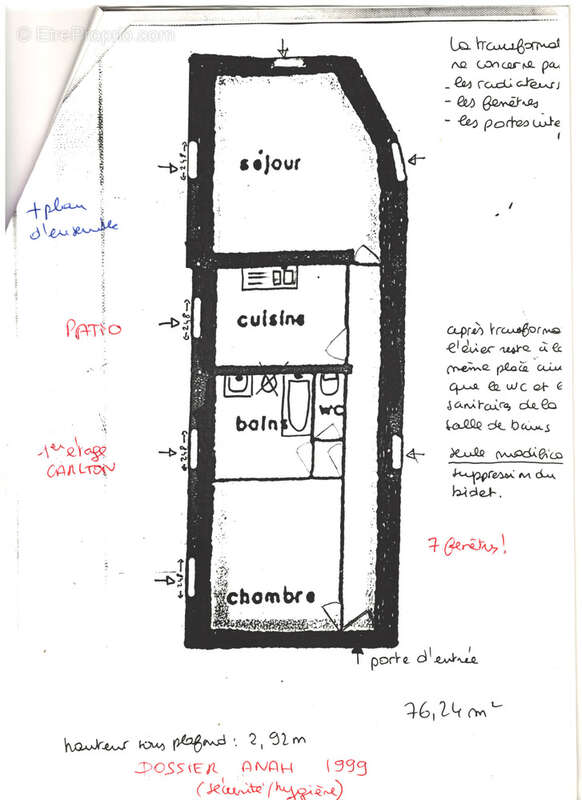 © EtreProprio.com
La transformat
ne concerne pa
- les radiateurs
- les fenêtres
- les portes
séjour
+ plan
d'ensemble
PATIO
cuisine
après transforma
l'évier reste à la
même place ain
que le WC et
sanitaires de la
salle de bains
seule modifica
suppression du
bidet.
bains
WC
1er étage
CARLTON
7 fenêtres!
chambre
porte d'entrée
76,24 m²
hauteur sous plafond : 2,92m
DOSSIER ANAH 1999
(sécurité/hygiène)